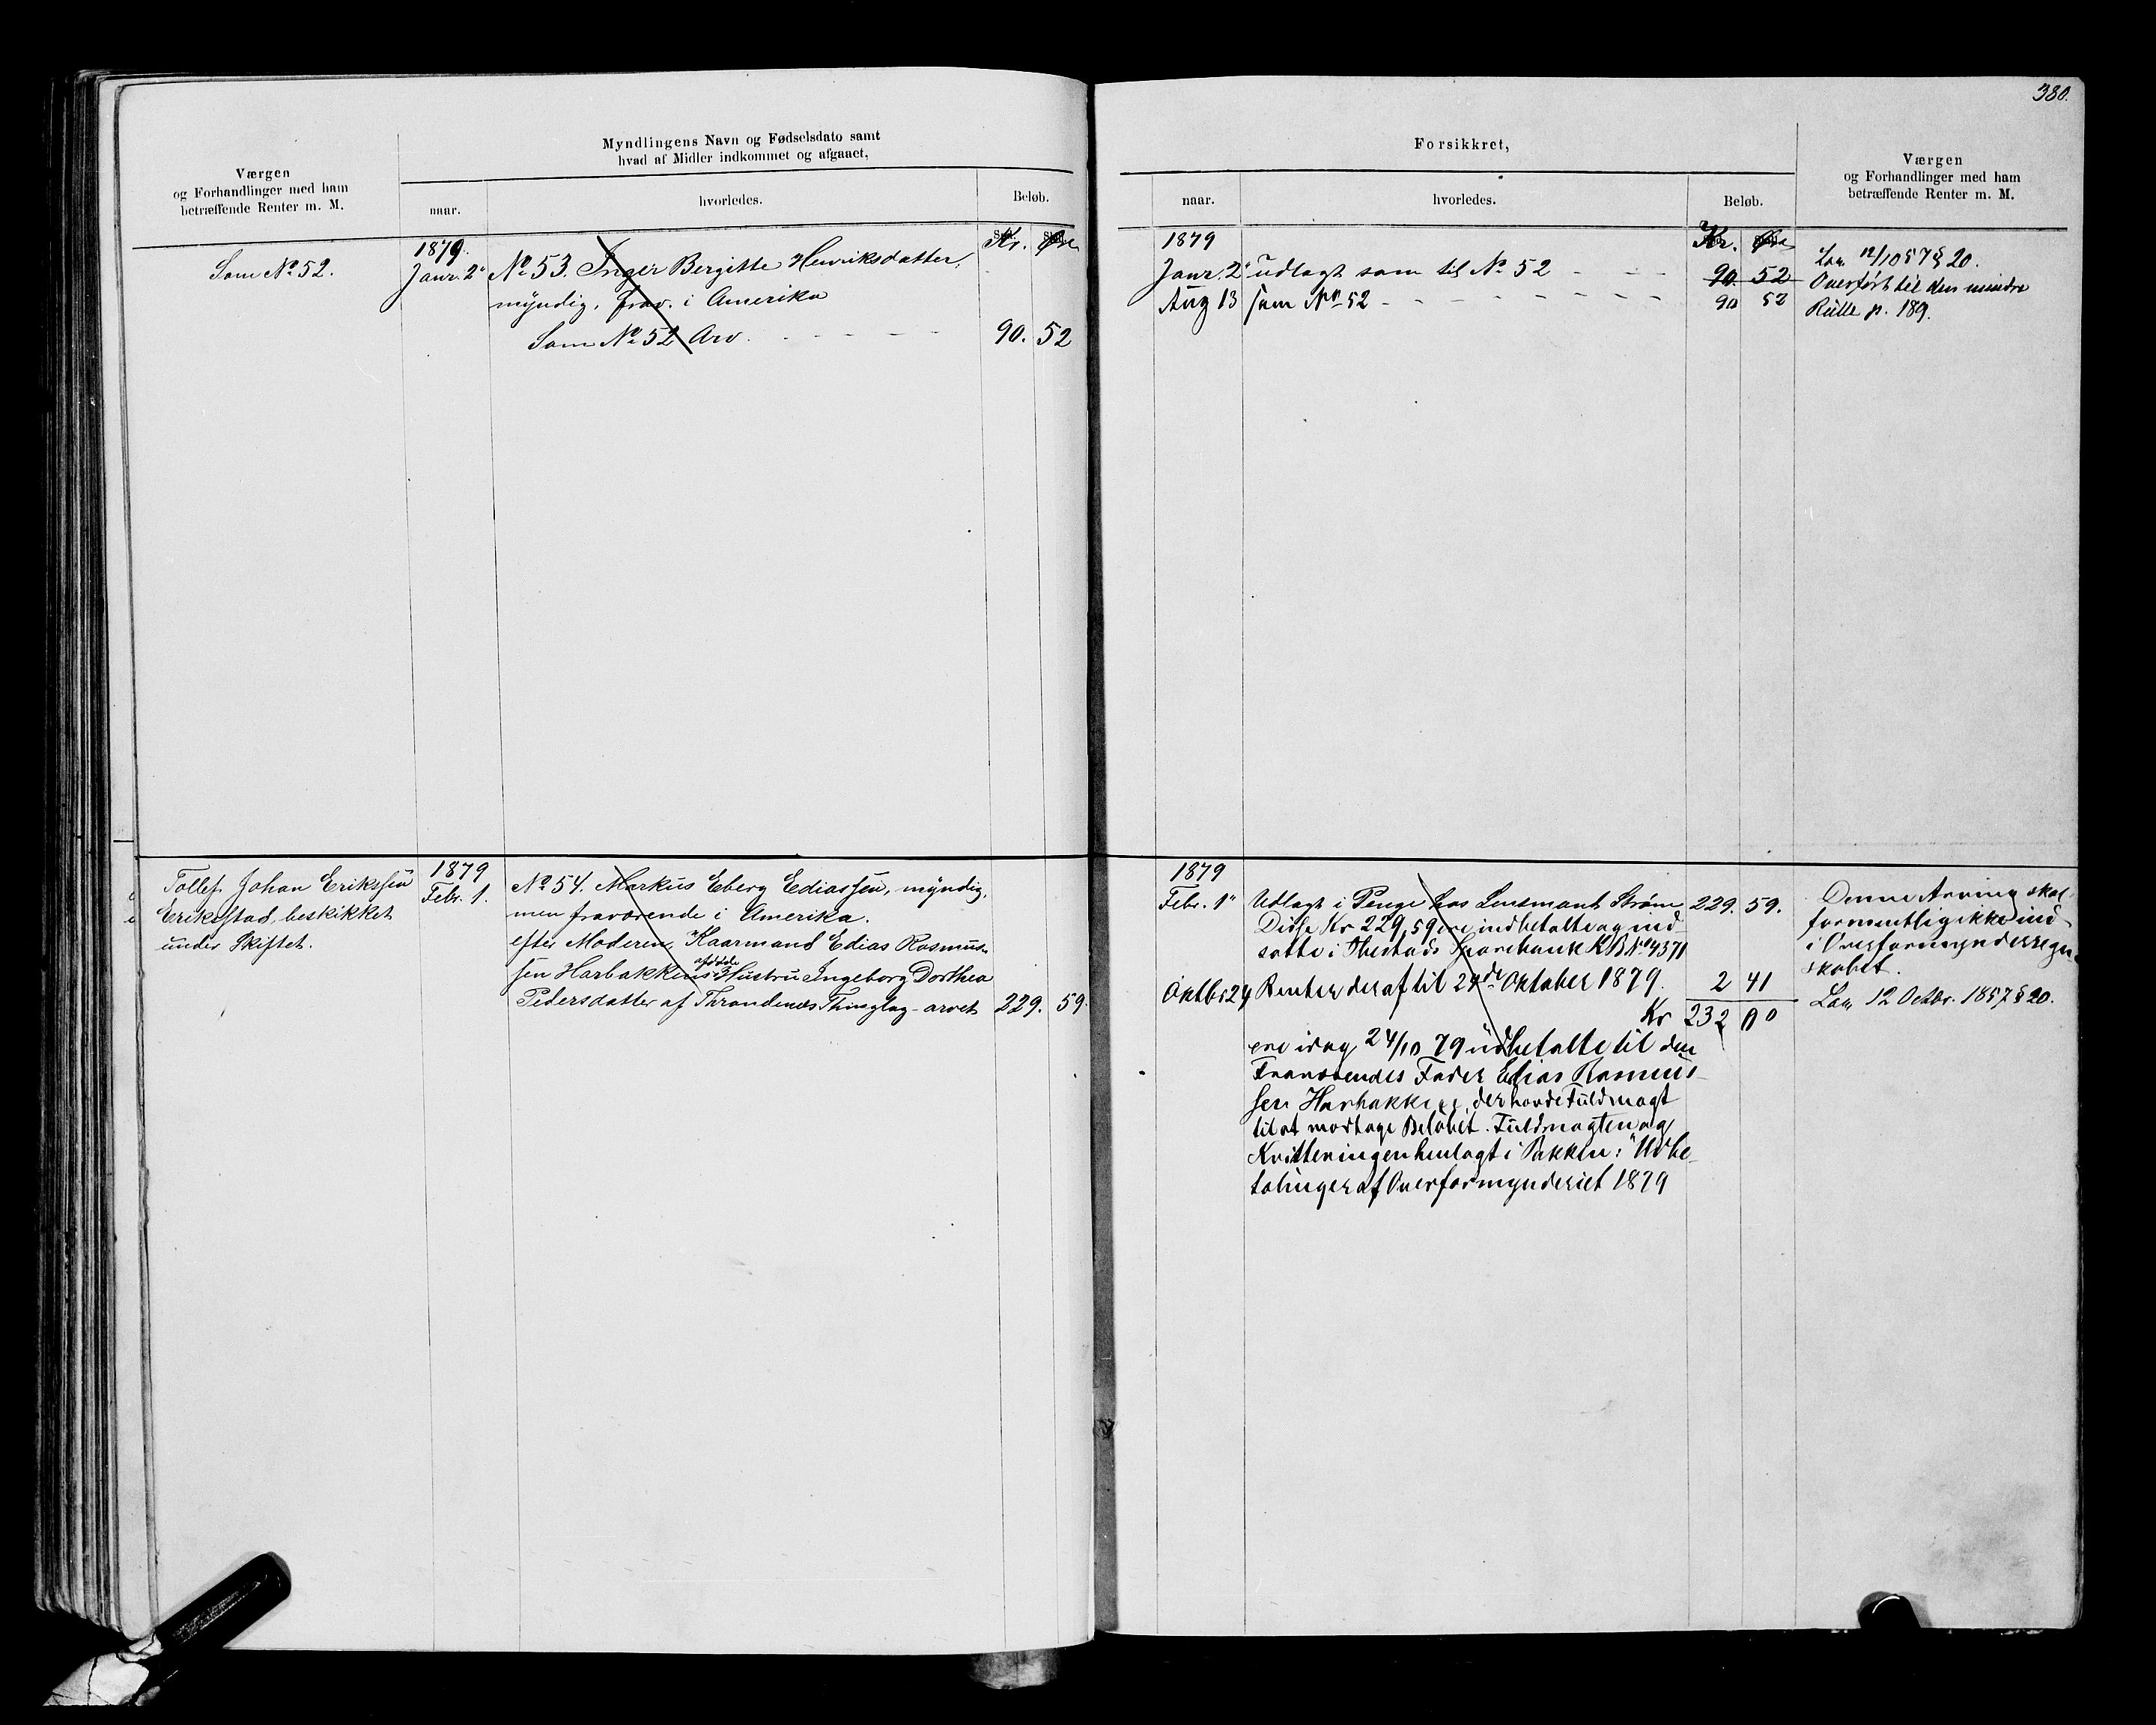 380.
Værgen
og Forhandlinger med ham
betræffende Renter m. M.
Myndlingens Navn og Fødselsdato samt
hvad af Midler indkommet og afgaaet,
naar.
hvorledes.
Beløb.
Kr. Øre
Som No 52.
1879.
Janr. 2"
No 53. Inger Bergitte Henriksdatter,
myndig, frav. i Amerika
Som No 52 Arv. - - - - - 90. 52
Tollef Johan Erikssen
Eriksstad beskikket
under Skiftet.
1879
Febr. 1.
No 54. Markus Eberg Ediassen, myndig,
men fraværende i Amerika.
efter Moderen, Kaarmand Edias Rasmus-
sen Harbakkens afdøde Hustru Ingeborg Dorthea
Pedersdatter af Throndenes Thinglag - arvet 229. 59
Forsikkret,
naar.
hvorledes.
Beløb.
Værgen
og Forhandlinger med ham
betræffende Renter m. M.
Kr. Øre
1879
Janr. 2" udlagt som til No 52 - - - 90. 52
Aug 13 som No 52 - - - - - - - - 90 52
Lov 12/10 57 § 20.
Overført til den mindre
Rulle p. 189.
1879
Febr. 1" Udlagt i Penge hos Lensmand Strøm 229. 59.
Disse Kr 229,59 ere indbetalte og ind-
satte i Ibestads Sparebank K B No 4371
Oktbr 24 Renter deraf til 24de Oktober 1879. 2 41
Kr 232 00
ere idag 24/10 79 udbetalte til den
Fraværendes Fader Edias Rasmus-
sen Harbakken, der havde Fuldmagt
til at modtage Beløbet. Fuldmagten og
Kvitteringen henlagt i Pakken: "Udbe-
talinger af Overformynderiet 1879
Denne Arving skal
formentlig ikke ind
i Overformynderregn-
skabet.
Lov 12 Octbr. 1857 § 20.